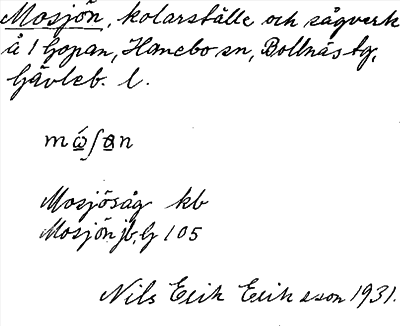 Mosjön, kolarställe och sågverk
å 1 Gopan, Hanebo sn, Bollnäs tg,
Gävleb. l.
Mosjösåg kb
Mosjön jb, G 105
Nils Erik Eriksson 1931.